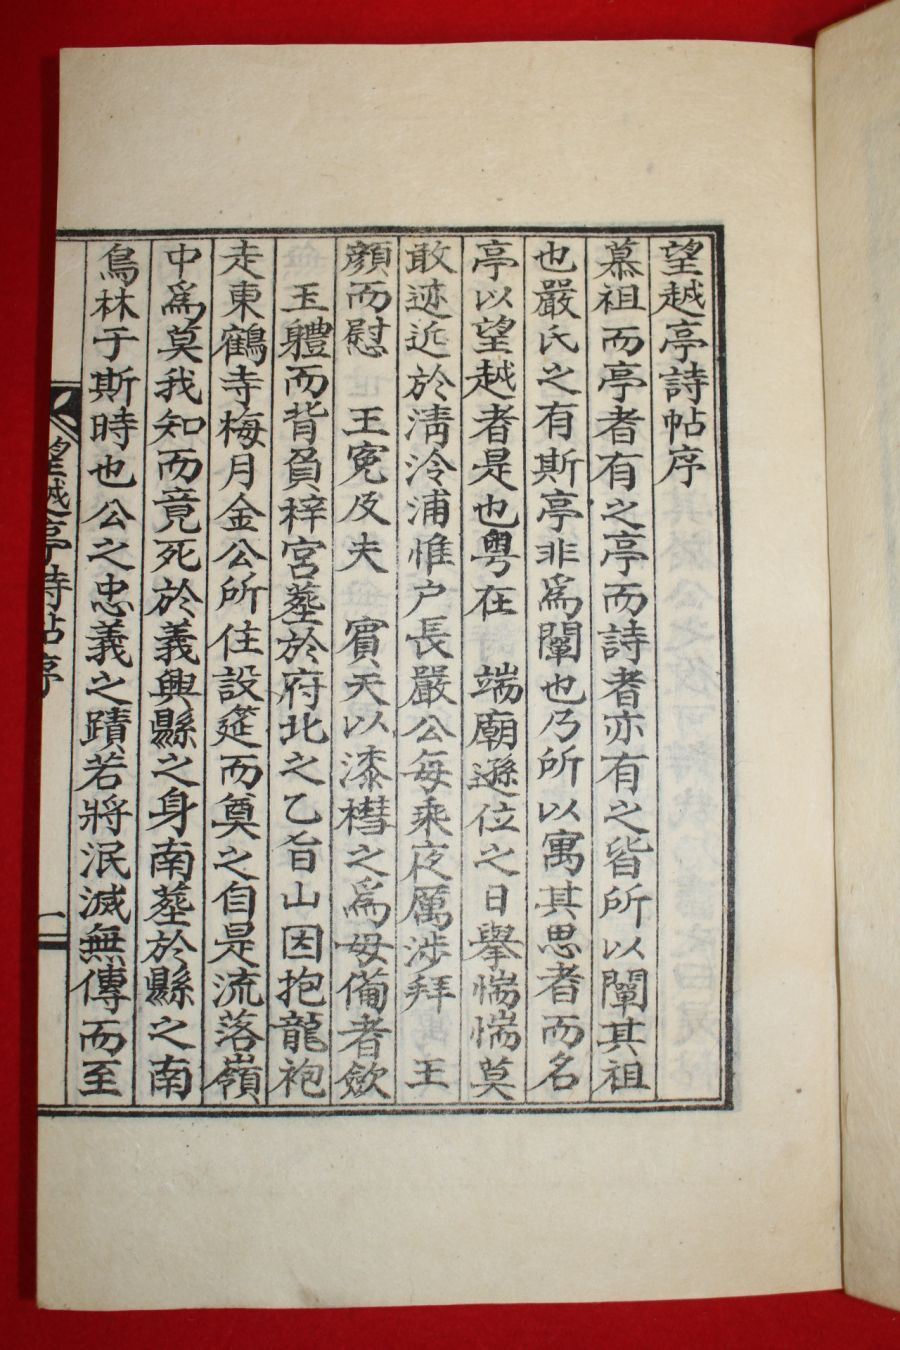 望越亭詩帖序
慕祖而亭者有之亭而詩者亦有之皆所以闡其祖
也嚴氏之有斯亭非爲闡也乃所以寓其思者而名
亭以望越者是也粤在 端廟遜位之日擧惴惴莫
敢迹近於淸泠浦惟户長嚴公每乘夜厲涉拜 王
顔而慰 王寃及夫 賓天以漆槥之爲母備者斂
玉軆而背負梓宮塟於府北之乙旨山因抱龍袍
走東鶴寺梅月金公所住設筵而奠之自是流落嶺
中爲莫我知而竟死於義興縣之身南塟於縣之南
鳥林于斯時也公之忠義之蹟若將泯滅無傳而至
望越亭詩帖序
一